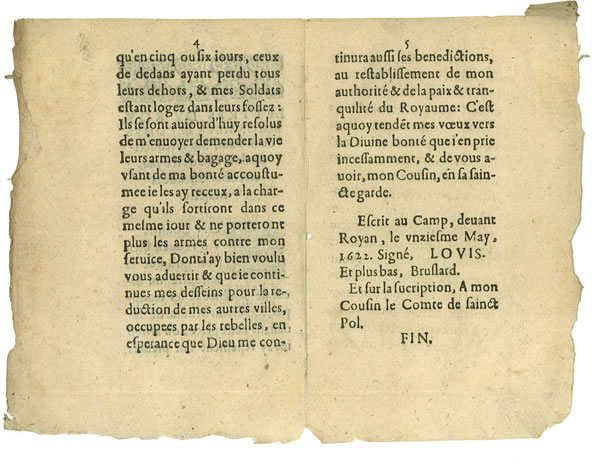 4
qu'en cinq ou six iours, ceux
de dedans ayant perdu tous
leurs dehors, & mes Soldats
estant logez dans leurs fossez :
Ils se sont auiourd'huy resolus
de m'enuoyer demender la vie
leurs armes & bagage, aquoy
vsant de ma bonté accoustu-
mee ie les ay receux, a la char-
ge qu'ils sortiront dans ce
mesme iour & ne porteront
plus les armes contre mon
seruice, Dont i'ay bien voulu
vous aduertir & que ie conti-
nues mes desseins pour la re-
duction de mes autres villes,
occupees par les rebelles, en
esperance que Dieu me con-
5
tinura aussi ses benedictions,
au restablissement de mon
authorité & de la paix & tran-
quilité du Royaume: C'est
aquoy tendẽt mes vœux vers
la Diuine bonté que i'en prie
incessamment, & de vous a-
uoir, mon Cousin, en sa sain-
cte garde.
Escrit au Camp, deuant
Royan, le vnziesme May,
1622. Signé, LOVIS.
Et plus bas, Bruslard.
Et sur la sucription, A mon
Cousin le Comte de sainct
Pol.
FIN.